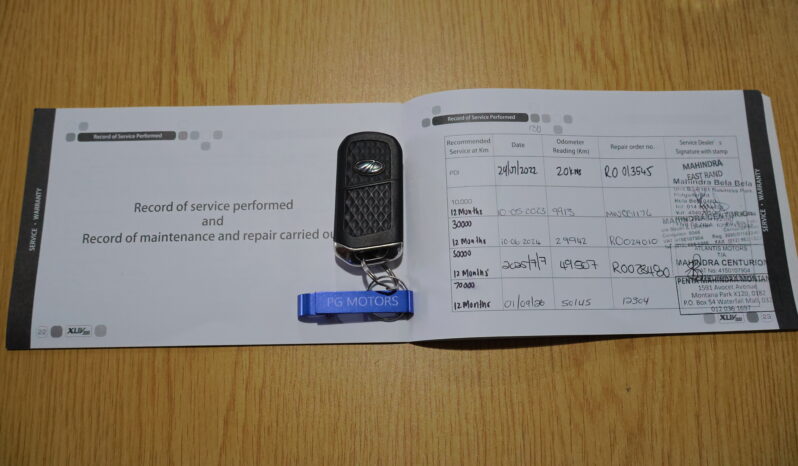 Record of Service Performed
Record of service performed
and
Record of maintenance and repair carried ou
SERVICE - WARRANTY
22
XUV500
PG MOTORS
Record of Service Performed
Recommended Service at Km
Date
Odometer Reading (Km)
Repair order no.
Service Dealer's Signature with stamp
PDI 24/01/2022 20kms RO 013545
MAHINDRA
EAST RAND
10.000
12 Months 10.05.2023 9913
Mahindra Bela Bela
30000
12 Months 10.06.2024 29942 RO024010
MAHINDRA CENTURION
50000
12 Months 2025/7/7 49507
ATLANTIS MOTORS
T/A
MAHINDRA CENTURION
70000
12 Months 01/09/26 50145 12304
PENTA MAHINDRA MONTANA
1591 Avocet Avenue
Montana Park X120, 0182
P.O. Box 54 Waterfall Mall, 032
012 036 1697
SERVICE - WARRANTY
XUV500
23